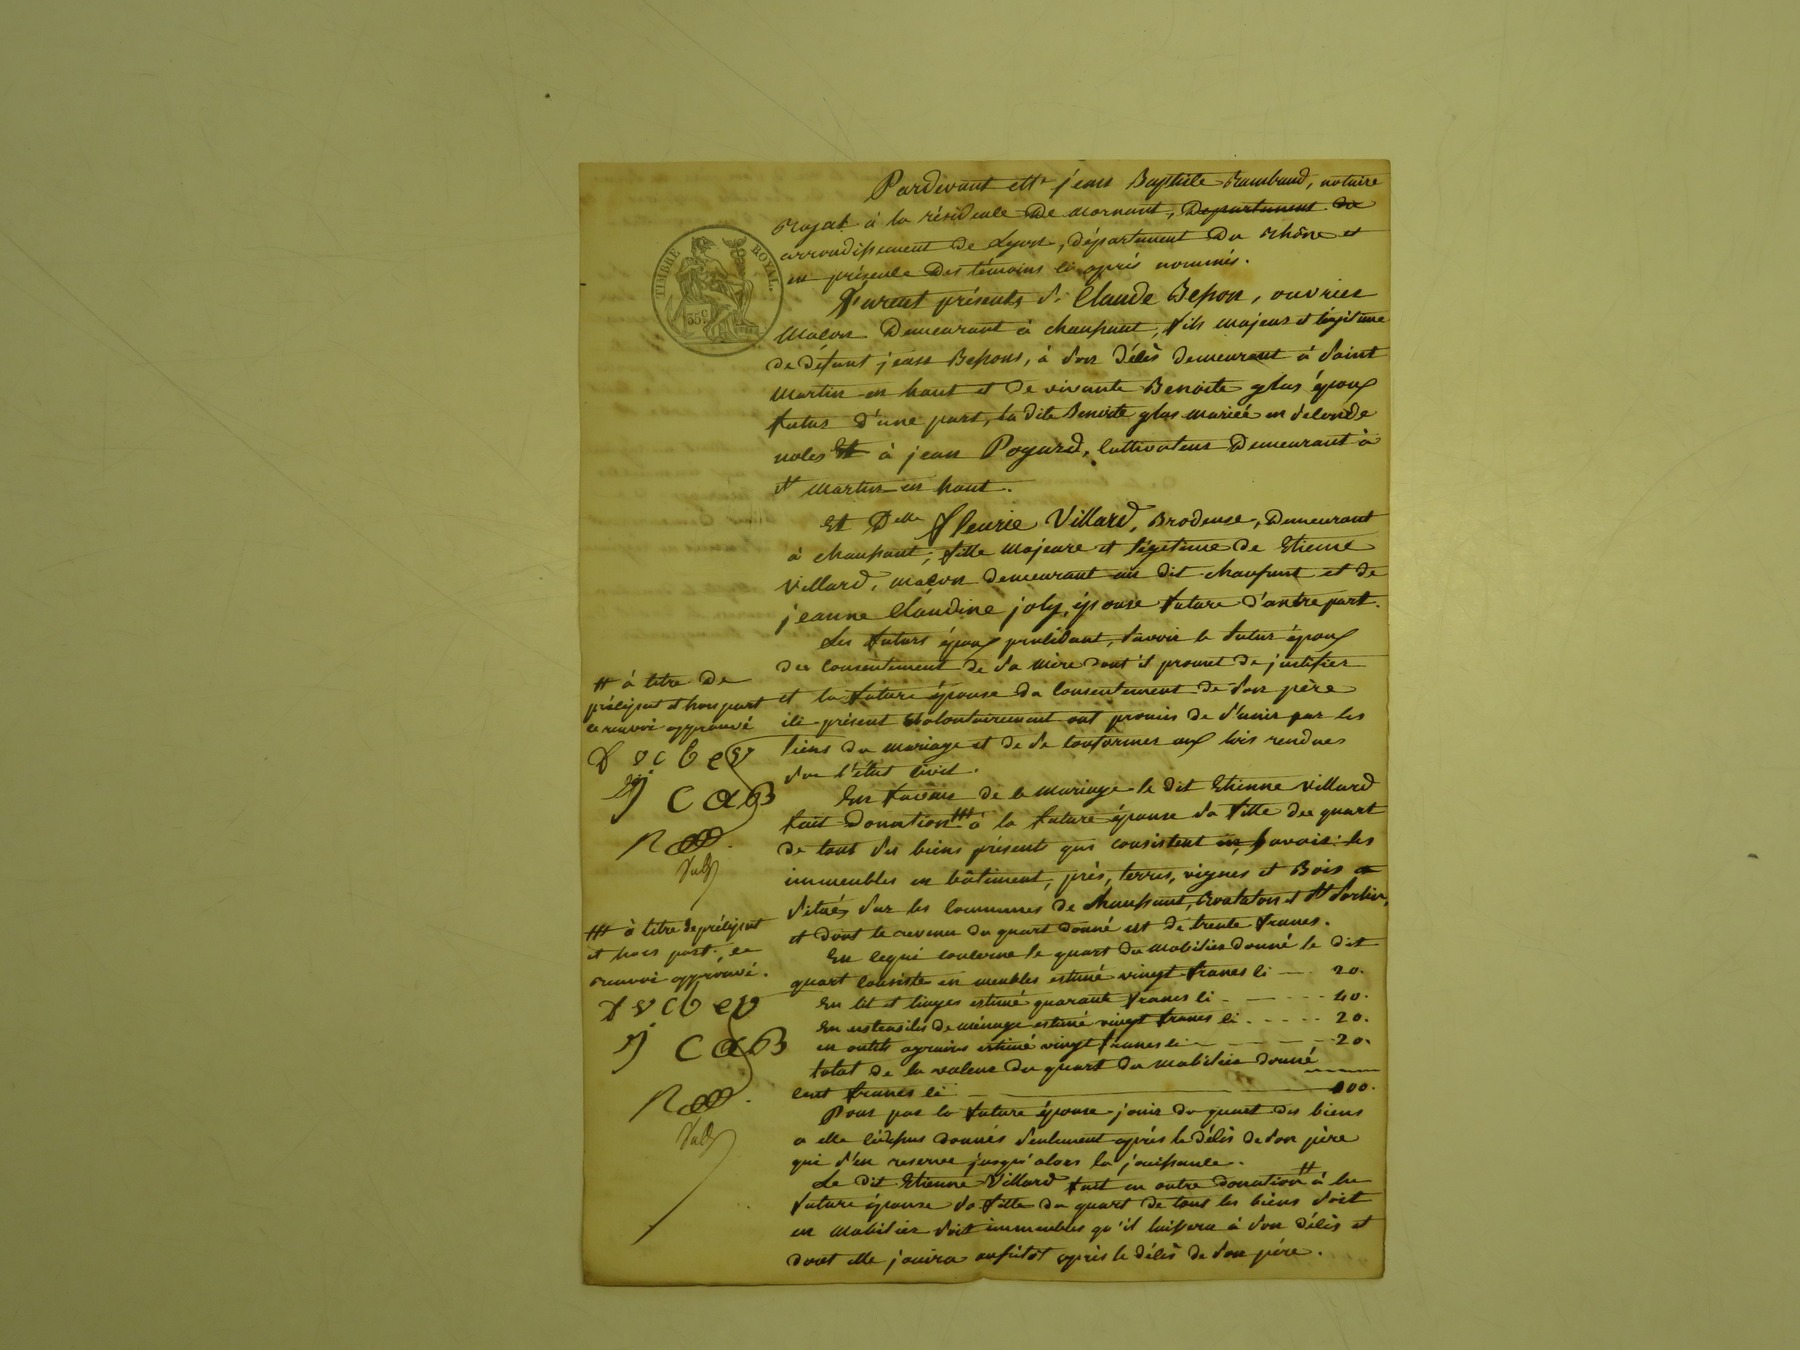 Pardevant Me jean Baptiste Rambaud, notaire
Royal à la résidence de Mornant, Departement du
arrondissement de Lyon, département du Rhône et
en présence des témoins ci après nommés.
TIMBRE ROYAL.
35 c.
Furent présents Sr Claude Besson, ouvrier
Macon Demeurant à chaussant, fils majeur et légitime
de défunt jean Bessons, à son décès demeurant à Saint
Martin en haut et de vivante Benoite glas époux
futur d'une part, la dite Benoite glas mariée en seconde
noces Et à jean Poyard, Cultivateur Demeurant à
St Martin en haut.
Et Delle Fleurie Villard, Brodeuse, Demeurant
à chaussant, fille Majeure et légitime de Etienne
Villard, maçon demeurant au dit chaussant et de
jeanne Claudine joly, épouse future d'autre part.
Les futurs époux procédant, savoir le futur époux
du consentement de sa mère dont il promet de justifier
et la future épouse du consentement de son père
ici présent Volontairement ont promis de s'unir par les
liens du mariage et de se conformer aux lois rendues
sur l'état civil.
En faveur de ce mariage le dit Etienne Villard
fait Donation ### à la future épouse sa fille du quart
de tous ses biens présents qui consistent en, savoir: les
immeubles en bâtiment, près, terres, vignes et Bois
situés sur les communes de Chaussant, et St Sorlin,
et dont le revenu du quart donné est de trente francs.
En ce qui concerne le quart du Mobilier donné le dit
quart consiste en meubles estimé vingt francs ci — 20.
En lit et linges estimé quarante francs ci - — - - - 40.
En ustensiles de ménage estimé vingt francs ci - - - - - 20.
en outils agraires estimé vingt francs ci — - - 20.
total de la valeur du quart du mobilier donné
cent francs ci — 100.
Pour par la future épouse jouir du quart des biens
a elle ci dessus donnés seulement après le décès de son père
qui s'en reserve jusqu'alors la jouissance.
Le dit Etienne Villard fait en outre donation ## à la
future épouse sa fille du quart de tous les biens soit
en Mobilier soit immeubles qu'il laissera à son décès et
dont elle jouira aussitôt après le décès de son père.
## à titre de
préciput et hors part
ce renvoi approuvé
### à titre de préciput
et hors part. ce
renvoi approuvé.